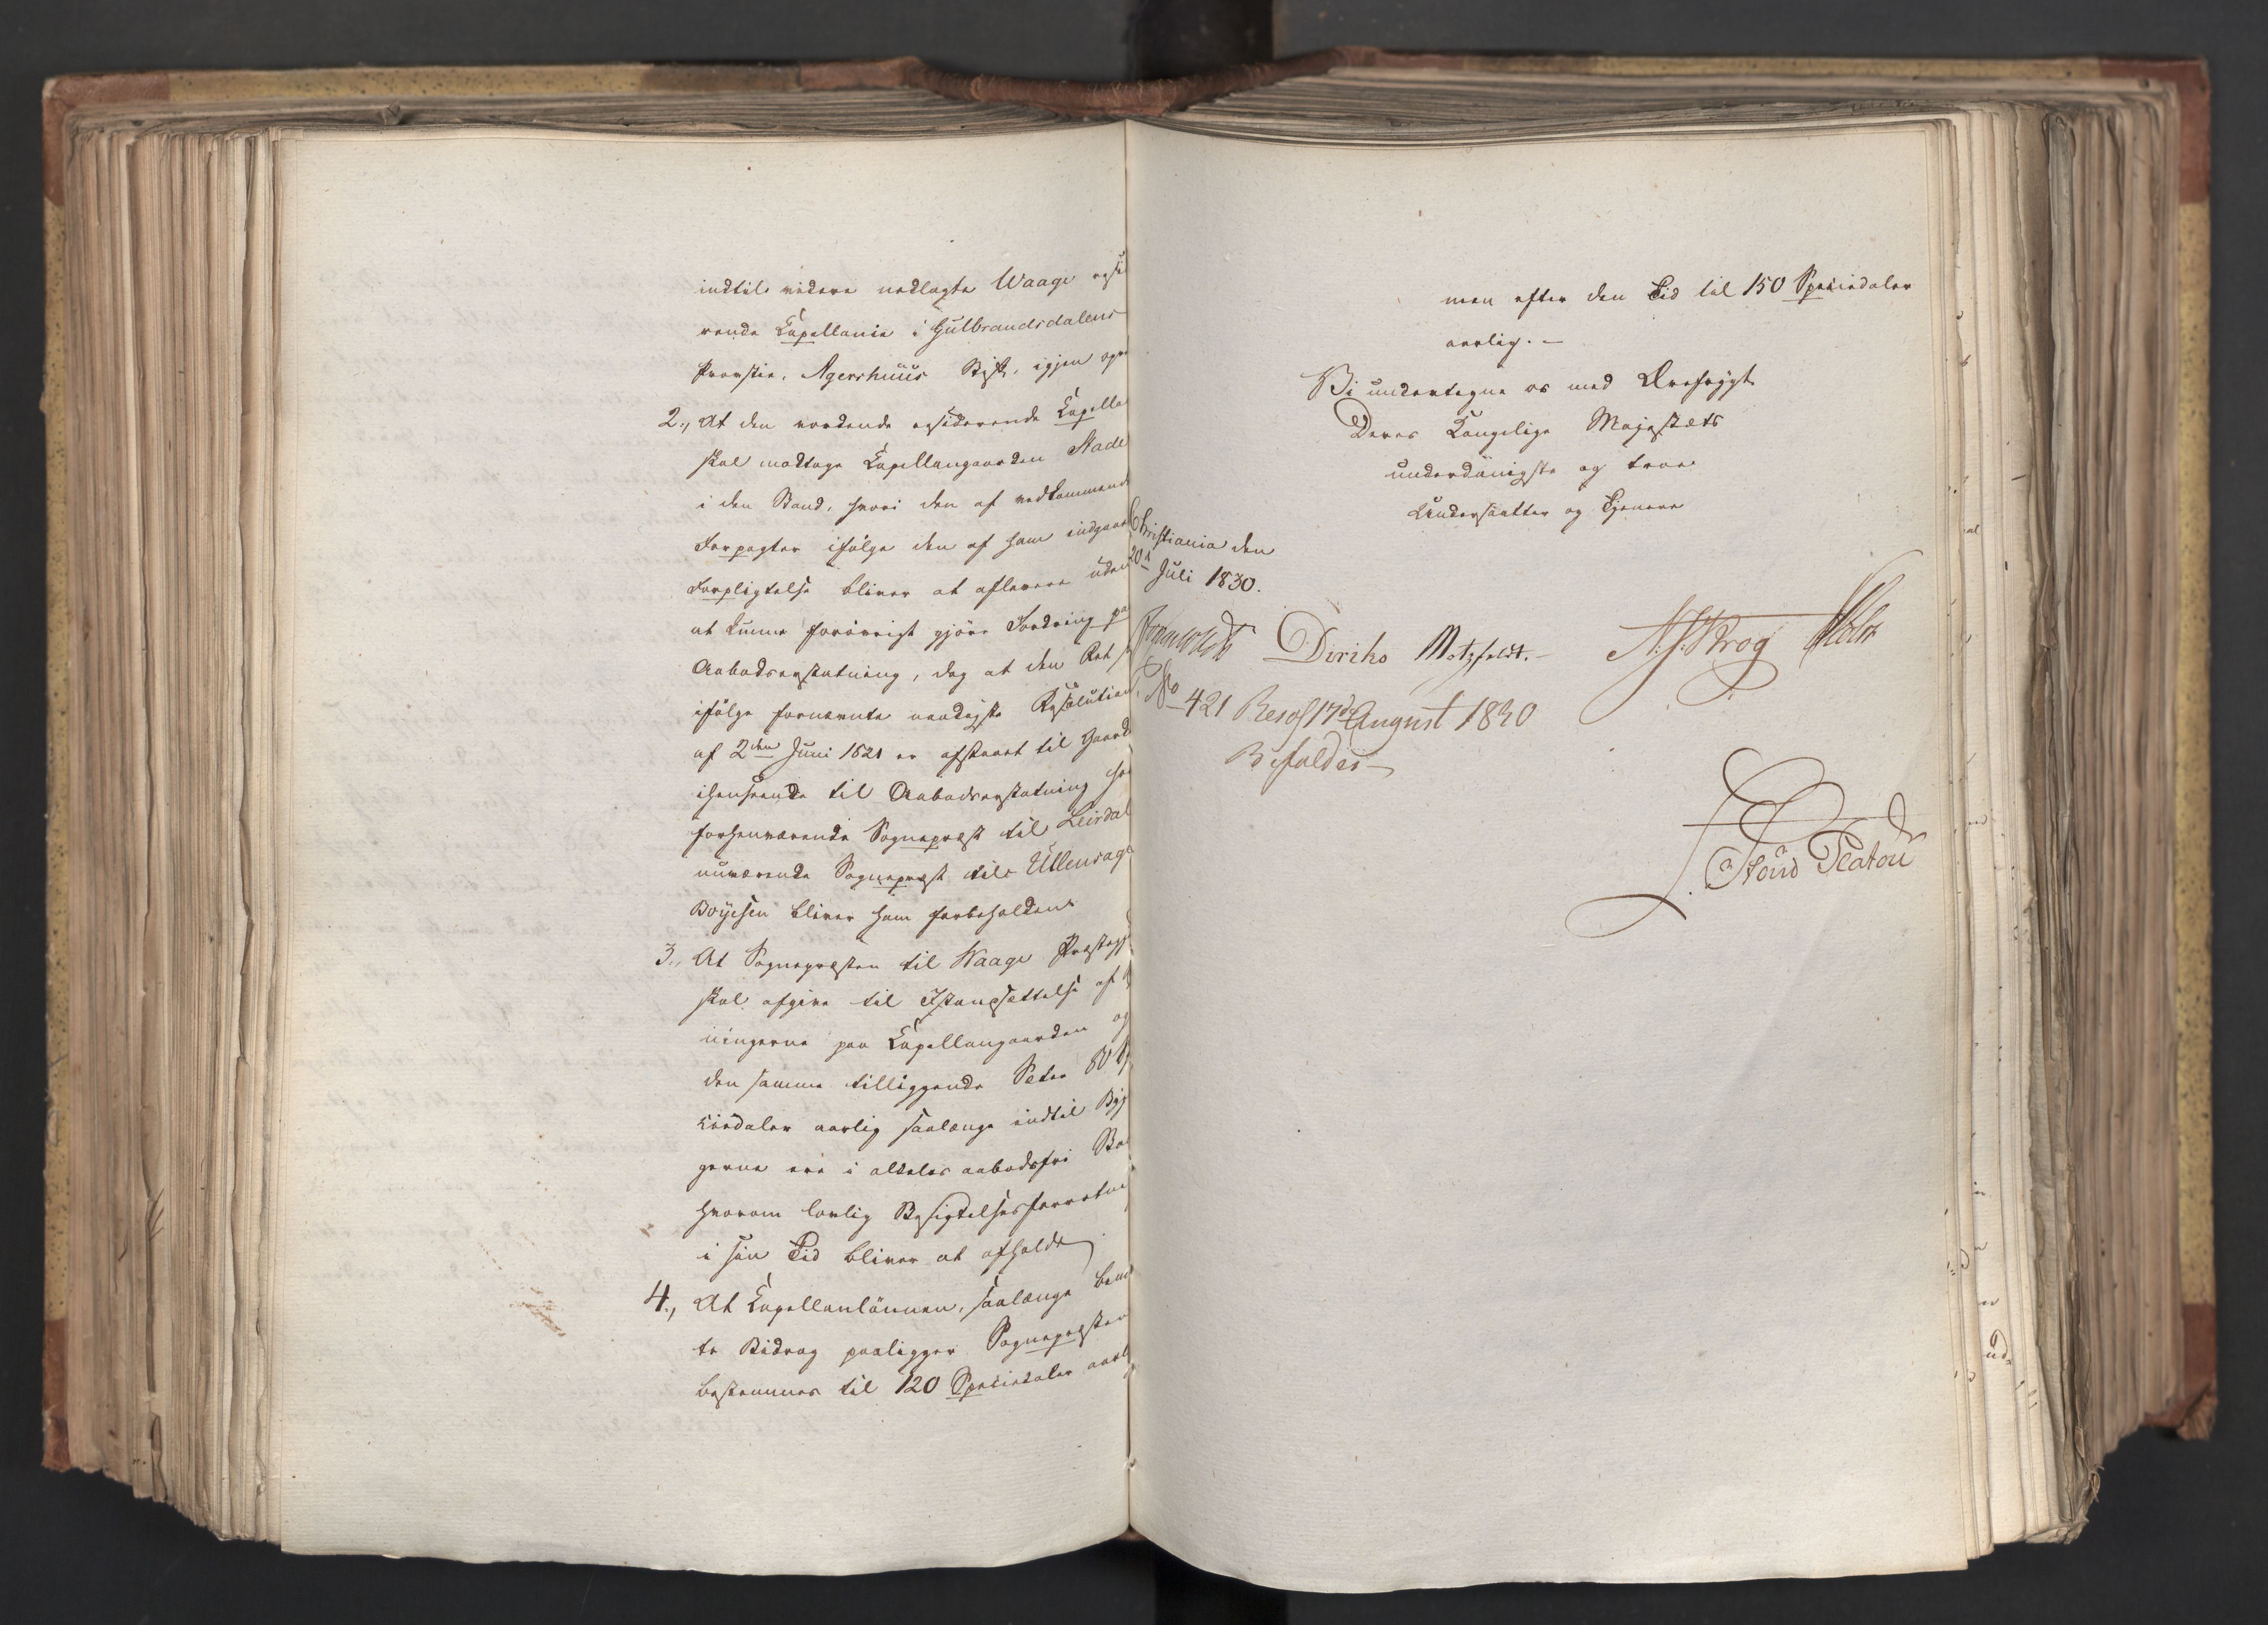 indtil videre nedlagte Waage resi
rende Capellanie i Gulbrandsdalens
Provstie, Agershuus Stift, igjen opr
2., At den vordende residerende Capella
skal modtage Capellangaarden Stade
i den Stand, hvori den af vedkommende
Forpagter ifølge den af ham indgaae
Forpligtelse bliver at aflevere uden
at kunne forøvrigt gjøre Fordring pa
Aabodserstatning, dog at den Ret s
ifølge fornævnte naadigste Resolution
af 2den Juni 1821 er afstaaet til Gaard
ihenseende til Aabodserstatning hos
forhenværende Sognepræst til Leirdal
nuværende Sognepræst til Ullensage
Boyesen bliver ham forbeholden
3., At Sognepræsten til Waage Præstegj
skal afgive til Istandsættelse af B
ningerne paa Capellangaarden og
den samme tilliggende Seter 80 S
ciedaler aarlig saalænge indtil Byg
gerne ere i aldeles aabodsfri Sta
hvorom lovlig Besigtelsesforretni
i sin Tid bliver at afholde
4., At Capellanlönnen, saalænge bem
te Bidrag paaligger Sognepræsten
bestemmes til 120 Speciedaler aarl
men efter den Tid til 150 Speciedaler
aarlig. —
Vi undertegne os med Ærefrygt
Deres Kongelige Majestæts
underdanigste og troe
Undersaatter og Tjenere
Christiania den
20de Juli 1830.
Diriks Motzfeldt. N. J. Krog Holst
No 421 Resol 17de August 1830
Bifaldes —
Stoud Platou